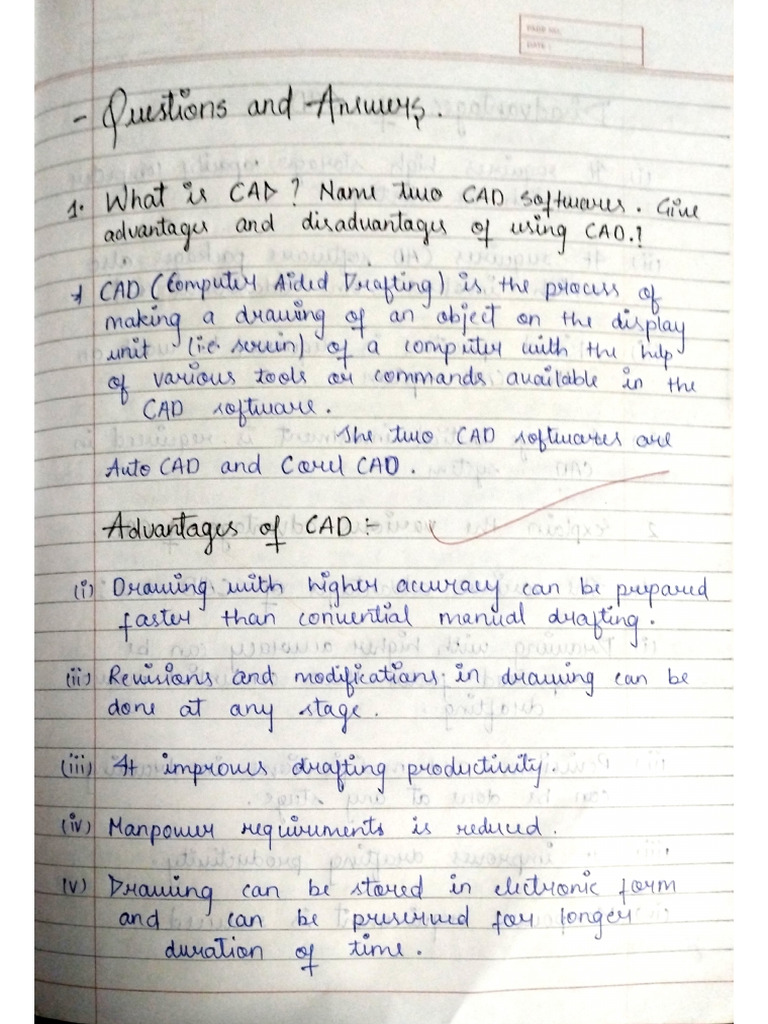 PAGE NO.
DATE :
- Questions and Answers.
1. What is CAD ? Name two CAD softwares. Give
advantages and disadvantages of using CAD.!
CAD (Computer Aided Drafting) is the process of
making a drawing of an object on the display
unit (i.e screen) of a computer with the help
of various tools or commands available in the
CAD software.
The two CAD softwares are
Auto CAD and Corel CAD.
Advantages of CAD :-
(i) Drawing with higher accuracy can be prepared
faster than convential manual drafting.
(ii) Revisions and modifications in drawing can be
done at any stage.
(iii) It improves drafting productivity.
(iv) Manpower requirements is reduced.
(v) Drawing can be stored in electronic form
and can be preserved for longer
duration of time.